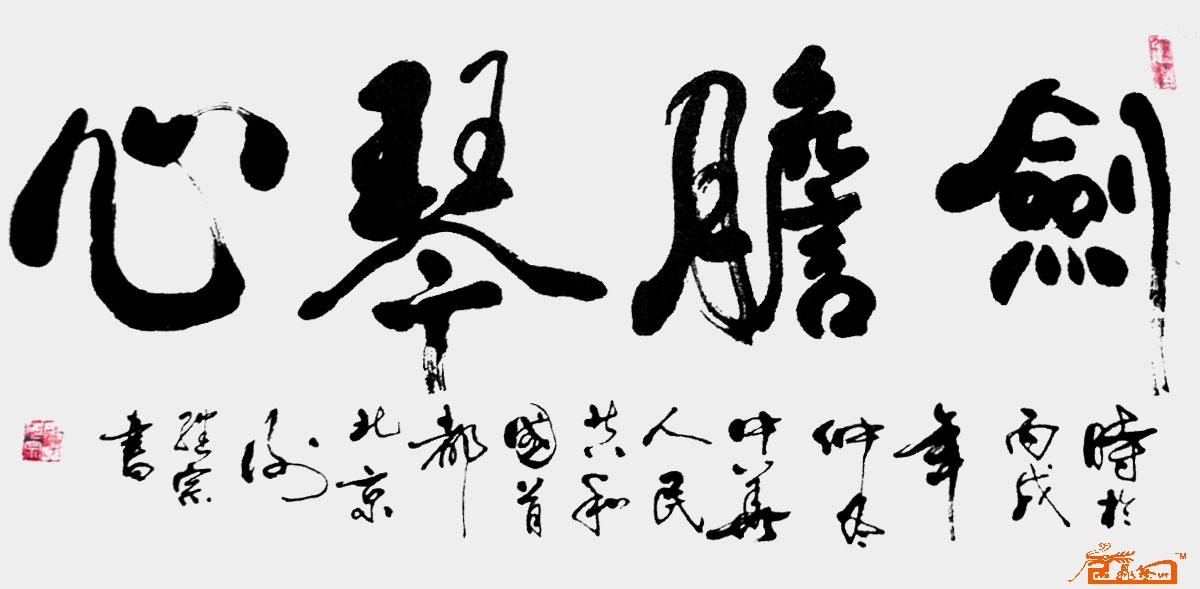 劍膽琴心
時於丙戌年仲冬中華人民共和國首都北京謝宗書